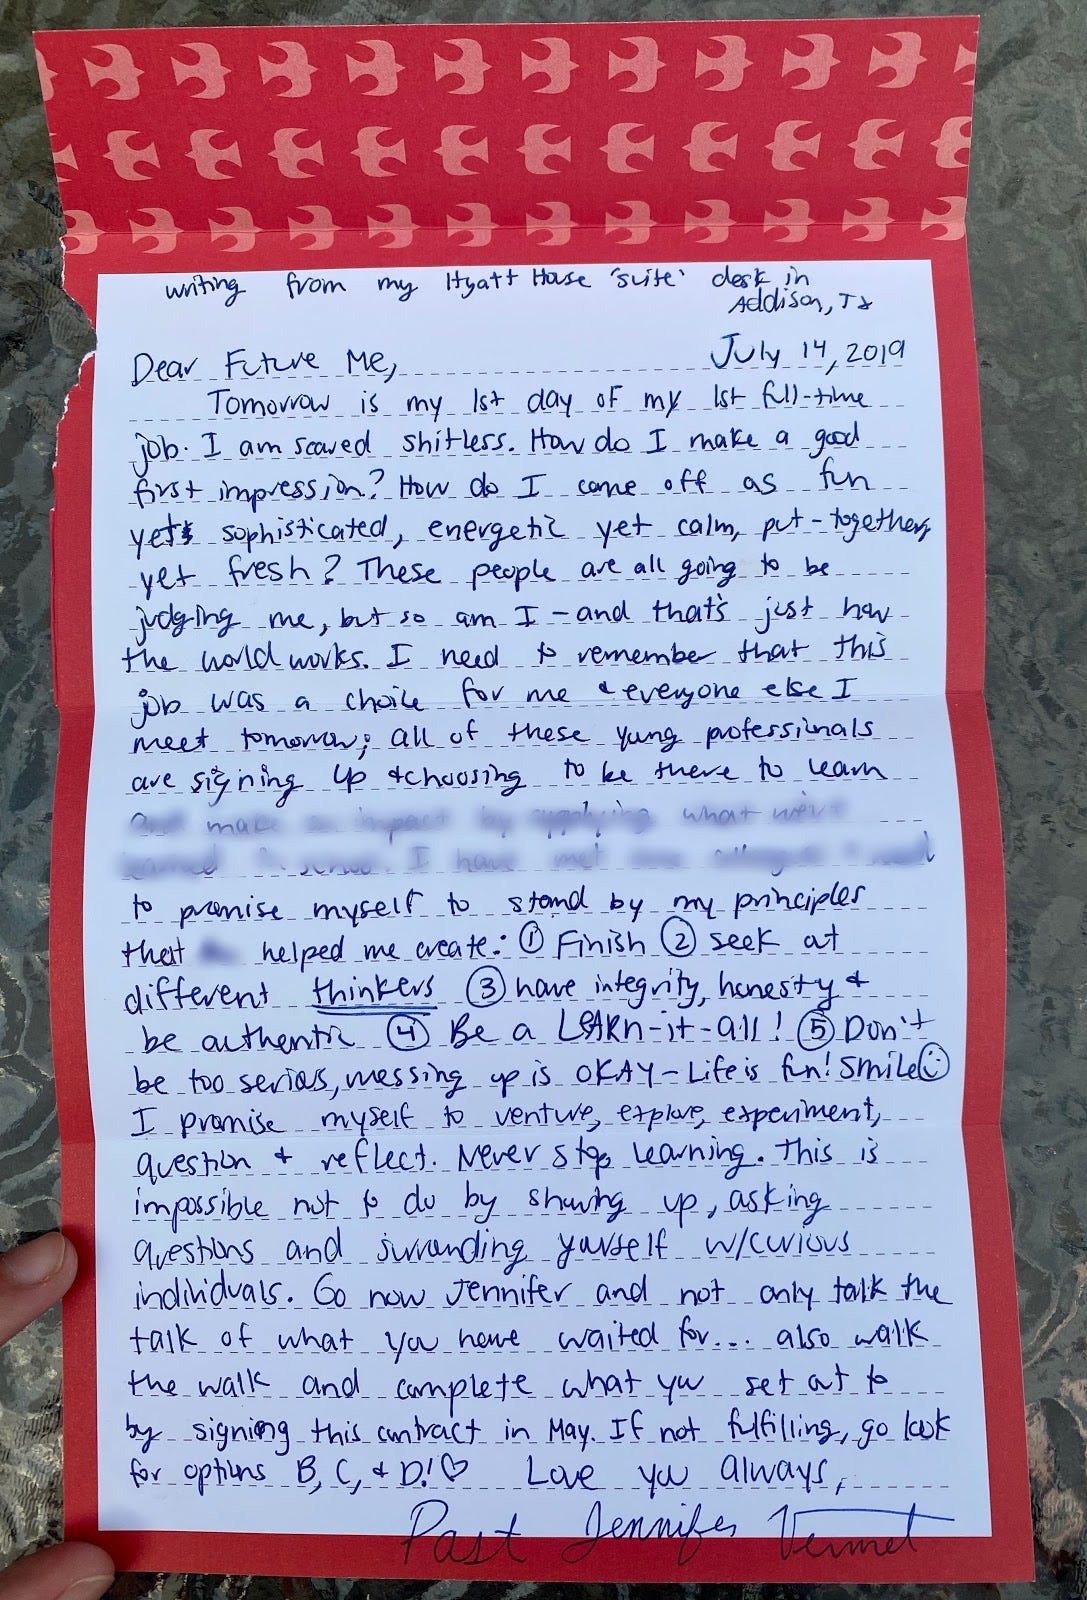 writing from my Hyatt House 'suite' desk in
Addison, TX
Dear Future Me, July 14, 2019
Tomorrow is my 1st day of my 1st full-time
job. I am scared shitless. How do I make a good
first impression? How do I come off as fun
yet sophisticated, energetic yet calm, put-together,
yet fresh? These people are all going to be
judging me, but so am I - and that's just how
the world works. I need to remember that this
job was a choice for me & everyone else I
meet tomorrow; all of these young professionals
are signing up & choosing to be there to learn
and make an impact by applying what we've
learned in school. I have met
to promise myself to stand by my principles
that helped me create: ① Finish ② seek out
different thinkers ③ have integrity, honesty &
be authentic ④ Be a LEARN-it-all! ⑤ Don't
be too serious, messing up is OKAY - Life is fun! Smile☺
I promise myself to venture, explore, experiment,
question & reflect. Never stop learning. This is
impossible not to do by showing up, asking
questions and surrounding yourself w/curious
individuals. Go now Jennifer and not only talk the
talk of what you have waited for... also walk
the walk and complete what you set out to
by signing this contract in May. If not fulfilling, go look
for options B, C, & D! ♡ Love you always,
Past Jennifer Vermet